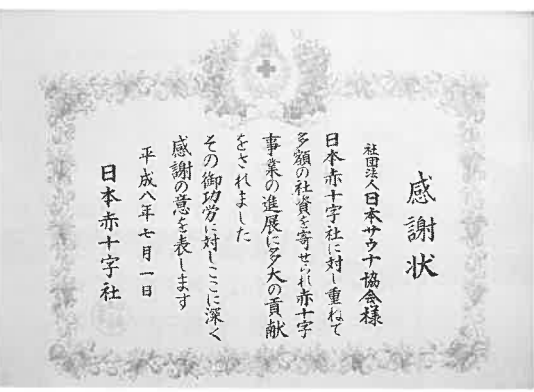 感謝状
社団法人日本サウナ協会様
日本赤十字社に対し重ねて
多額の社資を寄せられ赤十字
事業の進展に多大の貢献
をされました
その御功労に対しここに深く
感謝の意を表します
平成八年七月一日
日本赤十字社